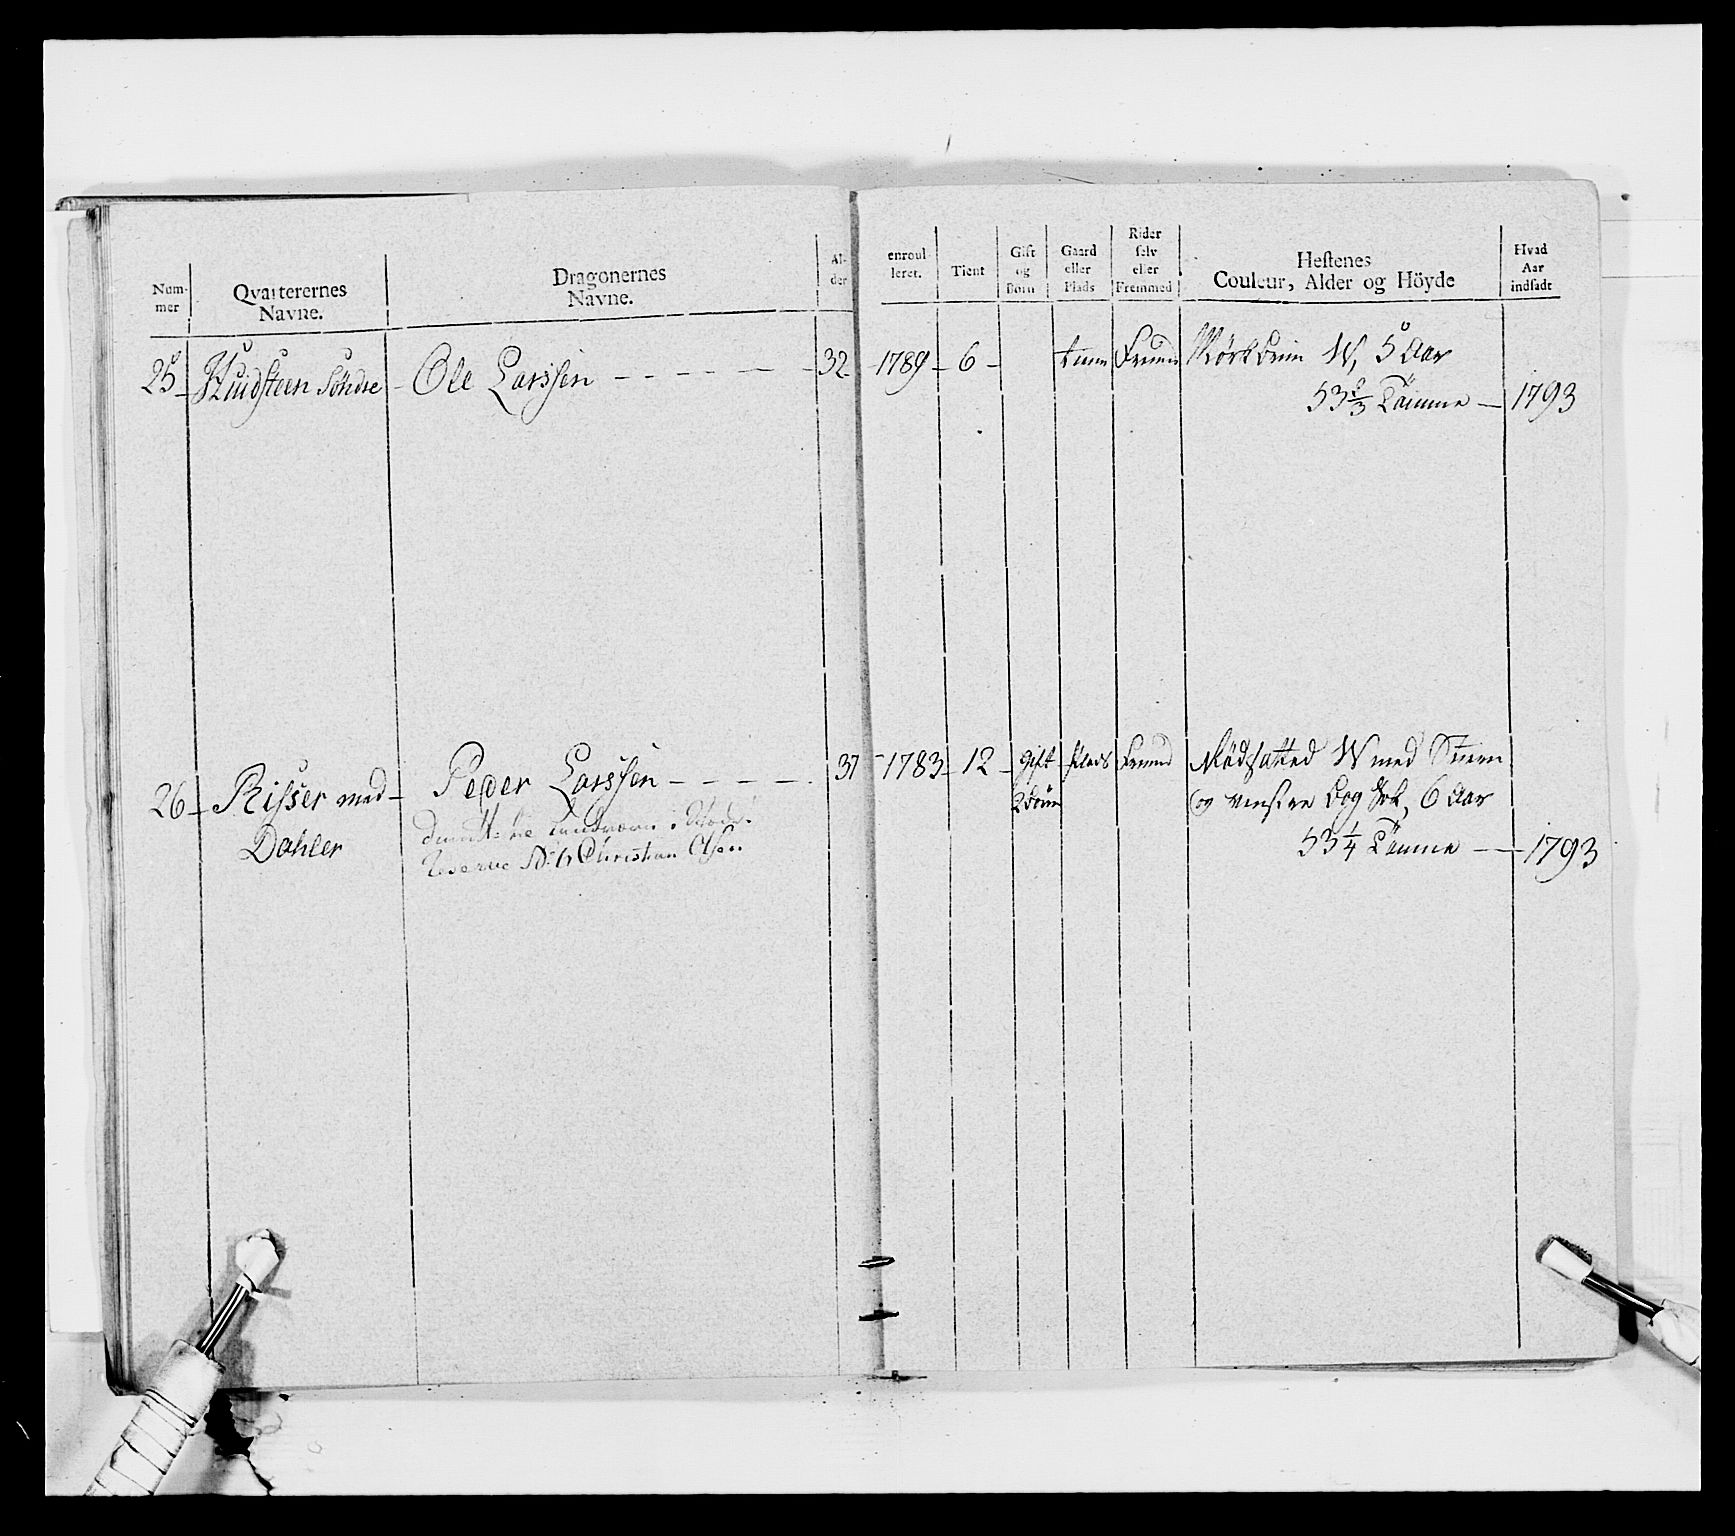 Num-
mer
Qvarterernes
Navne.
Dragonernes
Navne.
Al-
der
enroul-
leret.
Tient
Gift
og
Börn
Gaard
eller
Plads
Rider
selv
eller
Fremmed
Hestenes
Couleur, Alder og Höyde
Hvad
Aar
indsadt
25 Huidsteen Söndre - Ole Larssen - - - - - 32 1789 - 6 - Mörkbrun W, 5 Aar
53 2/3 Tomme - 1793
26 - Risser med - Peder Larssen - - - - 37 - 1783 - 12 - gift plads Fremd Rödsatted W med Stiern
Dahler 2 börn og venstre bag Sok, 6 Aar
Reserve No 6 Christian Olsen 53 1/4 Tomme - - 1793